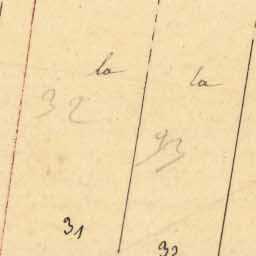 la
la
32
93
31
32